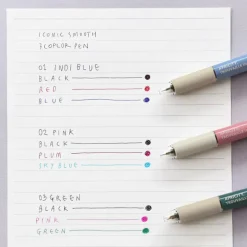 ICONIC SMOOTH
3COLOR PEN
01 INDIBLUE
BLACK
RED
BLUE
02 PINK
BLACK
PLUM
SKYBLUE
03 GREEN
BLACK
PINK
GREEN